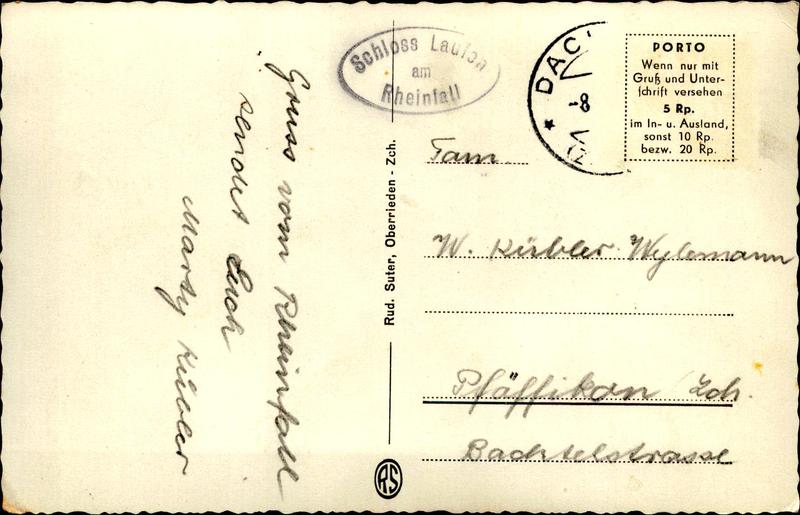 Gruss vom Rheinfall
sendet Euch
Marty Kübler
Schloss Laufen
am
Rheinfall
DAC
-8
VI
PORTO
Wenn nur mit
Gruß und Unter-
schrift versehen
5 Rp.
im In- u. Ausland,
sonst 10 Rp.
bezw. 20 Rp.
Rud. Suter, Oberrieden - Zch.
RS
Fam.
W. Kübler Wylemann
Pfäffikon Zch.
Bachtelstrasse